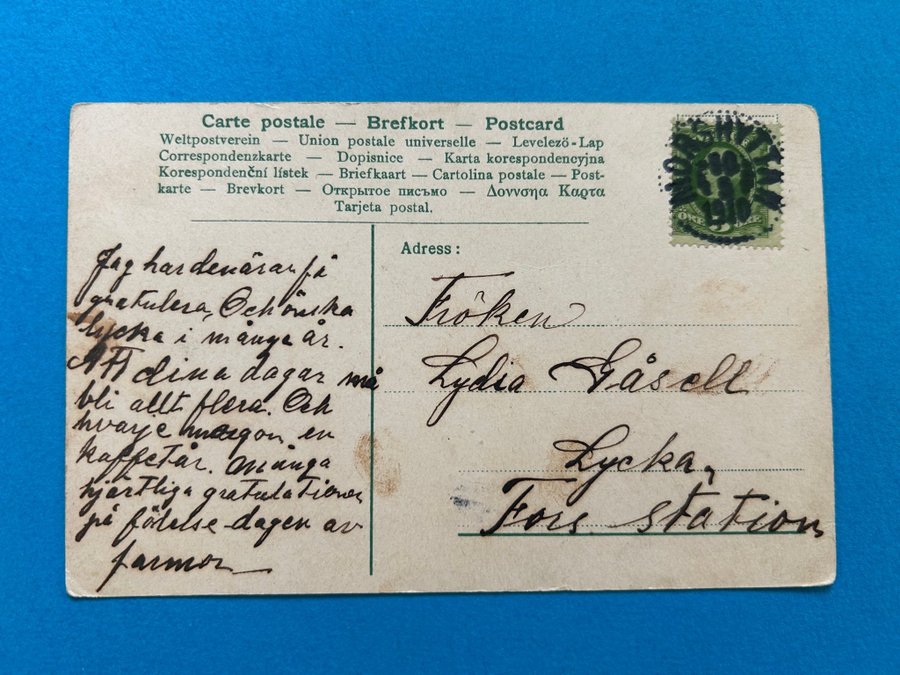 Carte postale — Brefkort — Postcard
Weltpostverein — Union postale universelle — Levelező-Lap
Correspondenzkarte — Dopisnice — Karta korespondencyjna
Korespondenční lístek — Briefkaart — Cartolina postale — Post-
karte — Brevkort — Открытое письмо — Δουνσηα Καρτα
Tarjeta postal.
Adress:
Jag har den äran få
gratulera, Och önska
lycka i många år.
Att dina dagar må
bli allt flera. Och
hvarje morgon en
kaffetår. Många
hjärtliga gratulationer
på födelse-dagen av
farmor
Fröken
Lydia Gåsell
Lycka,
Fors station
1910